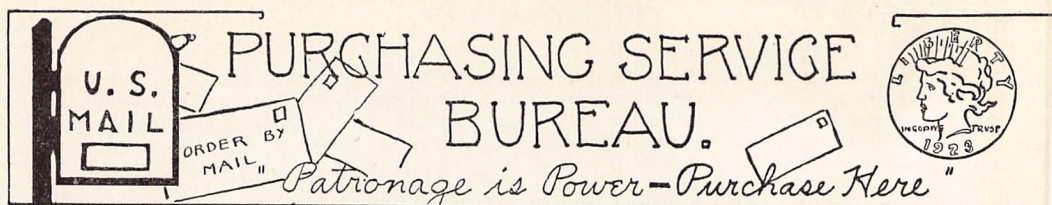 U.S.
MAIL
ORDER BY
MAIL"
PURCHASING SERVICE
BUREAU.
Patronage is Power-Purchase Here"
LIBERTY
IN GOD WE TRUST
1923